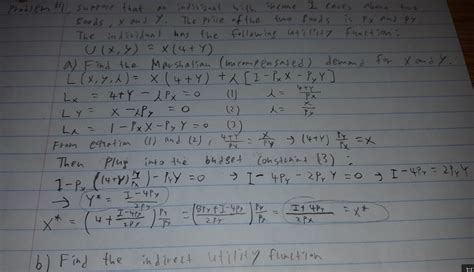 Problem #1 suppose that an individual with income I cares about two
goods, X and Y. The price of the two goods is Px and Py
The individual has the following utility function:
U(X,Y) = X(4+Y)
a) Find the Marshallian (uncompensated) demand for X and Y.
L(X,Y,λ) = X(4+Y) + λ[I-PxX-PyY]
Lx = 4+Y - λPx = 0 (1) λ = (4+Y)/Px
LY = X - λPy = 0 (2) λ = X/Py
Lλ = I-PxX-PyY = 0 (3)
From equation (1) and (2), (4+Y)/Px = X/Py → (4+Y) Py/Px = X
Then plug into the budget constraint (3):
I-Px((4+Y)Py/Px)-PyY = 0 → I-4Py-2PyY = 0 → I-4Py = 2PyY
→ Y* = (I-4Py)/2Py
X* = (4 + (I-4Py)/2Py) Py/Px = ((8Py+I-4Py)/2Py) Py/Px = (I+4Py)/2Px = X*
b) Find the indirect utility function